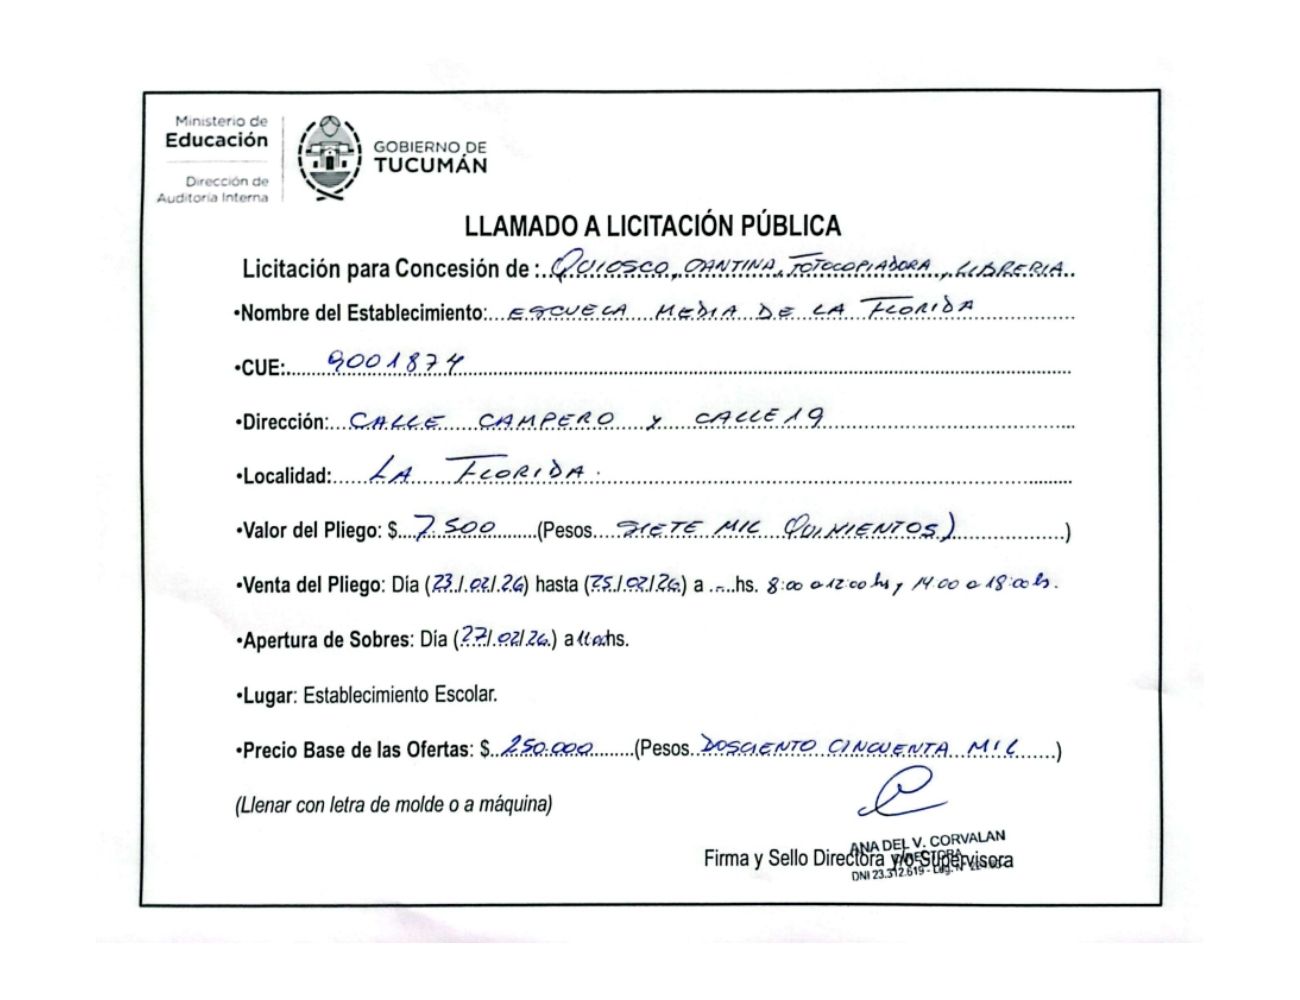 Ministerio de
Educación
Dirección de
Auditoría Interna
GOBIERNO DE
TUCUMÁN
LLAMADO A LICITACIÓN PÚBLICA
Licitación para Concesión de : QUIOSCO, CANTINA, FOTOCOPIADORA, LIBRERIA
•Nombre del Establecimiento: ESCUELA MEDIA DE LA FLORIDA
•CUE: 9001874
•Dirección: CALLE CAMPERO Y CALLE 19
•Localidad: LA FLORIDA.
•Valor del Pliego: $ 7.500 (Pesos SIETE MIL QUINIENTOS) )
•Venta del Pliego: Día (23/02/26) hasta (25/02/26) a ....hs. 8:00 a 12:00 hs y 14:00 a 18:00 hs.
•Apertura de Sobres: Día (27/02/26) a 11:00 hs.
•Lugar: Establecimiento Escolar.
•Precio Base de las Ofertas: $ 250.000 (Pesos DOSCIENTO CINCUENTA MIL )
(Llenar con letra de molde o a máquina)
ANA DEL V. CORVALAN
DIRECTORA
Firma y Sello Directora y/o Supervisora
DNI 23.312.619 - Leg. N°